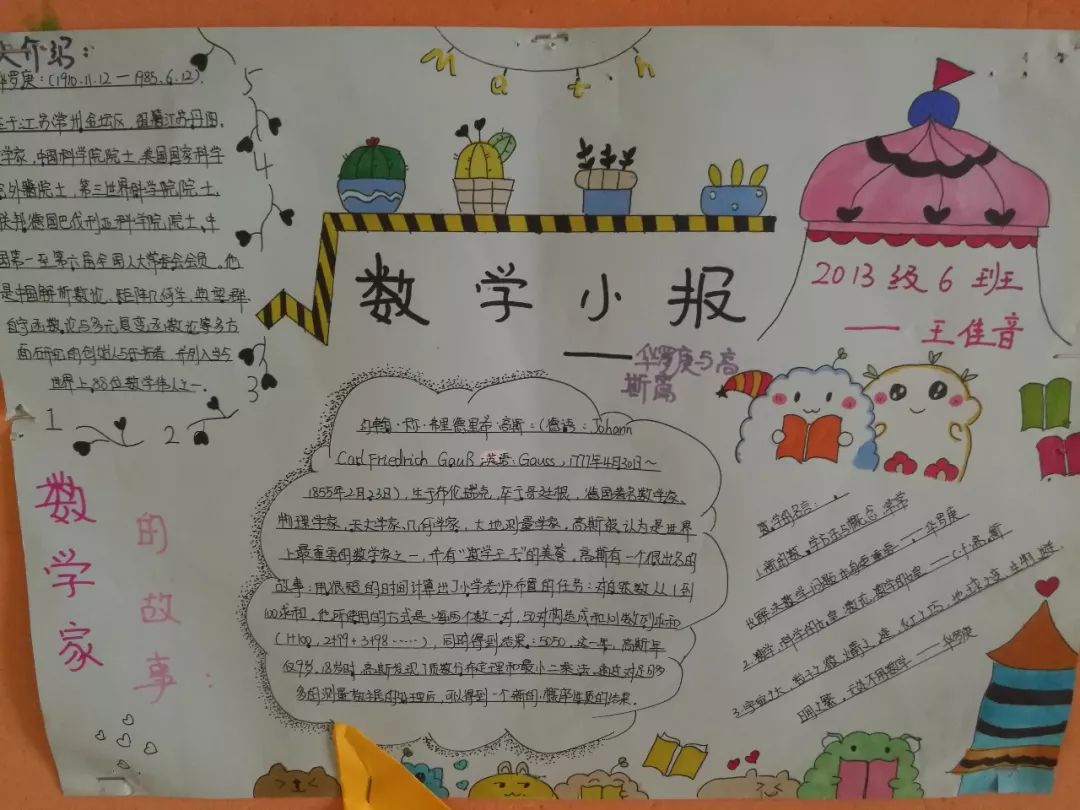 介绍:
罗庚:(1910.11.12—1985.6.12).
于江苏常州金坛区，祖籍江苏丹阳.
学家，中国科学院院士，美国国家科学
外籍院士，第三世界科学院院士，
联邦德国巴伐利亚科学院院士.中
国第一至第六届全国人大常委会会员。他
是中国解析数论、矩阵几何学、典型群、
自守函数论与多元复变函数论等多方
面研究的创始人与开拓者，并列入当今
世界上88位数学伟人之一.
5
4
3
2
1
Math
数学小报
——华罗庚与高
斯篇
2013级6班
——王佳音
数学家
的故事:
约翰·卡尔·弗里德里希·高斯:(德语:Johann
Carl Friedrich Gauß;英语:Gauss,1777年4月30日~
1855年2月23日)，生于布伦瑞克，卒于哥廷根，德国著名数学家、
物理学家、天文学家、几何学家，大地测量学家，高斯被认为是世界
上最重要的数学家之一，并有“数学王子”的美誉，高斯有一个很出名的
故事:用很短的时间计算出了小学老师布置的任务:对自然数从1到
100求和，他所使用的方式是:对50对构造成和101的数列求和
(1+100，2+99+3+98……)，同时得到结果:5050，这一年，高斯年
仅9岁，18岁时，高斯发现了质数分布定理和最小二乘法，通过对足够
多的测量数据的处理后，可以得到一个新的，概率性质的结果.
数学的名言:
1.新的数学方法与概念，常常
比解决数学问题本身更重要——华罗庚
2.数学，科学的女皇;数论，数学的女皇——C·F·高斯
3.宇宙之大、粒子之微、火箭之速、化工之巧、地球之变、生物之谜、
日用之繁，无处不用数学——华罗庚